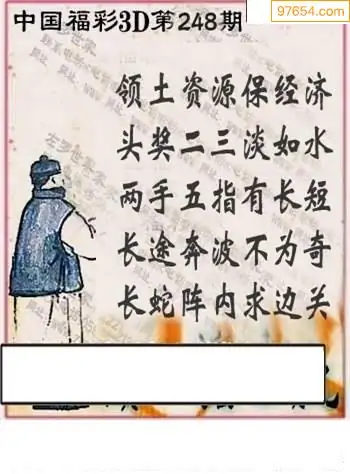 中国福彩3D第248期
97654.com
领土资源保经济
头奖二三淡如水
两手五指有长短
长途奔波不为奇
长蛇阵内求边关